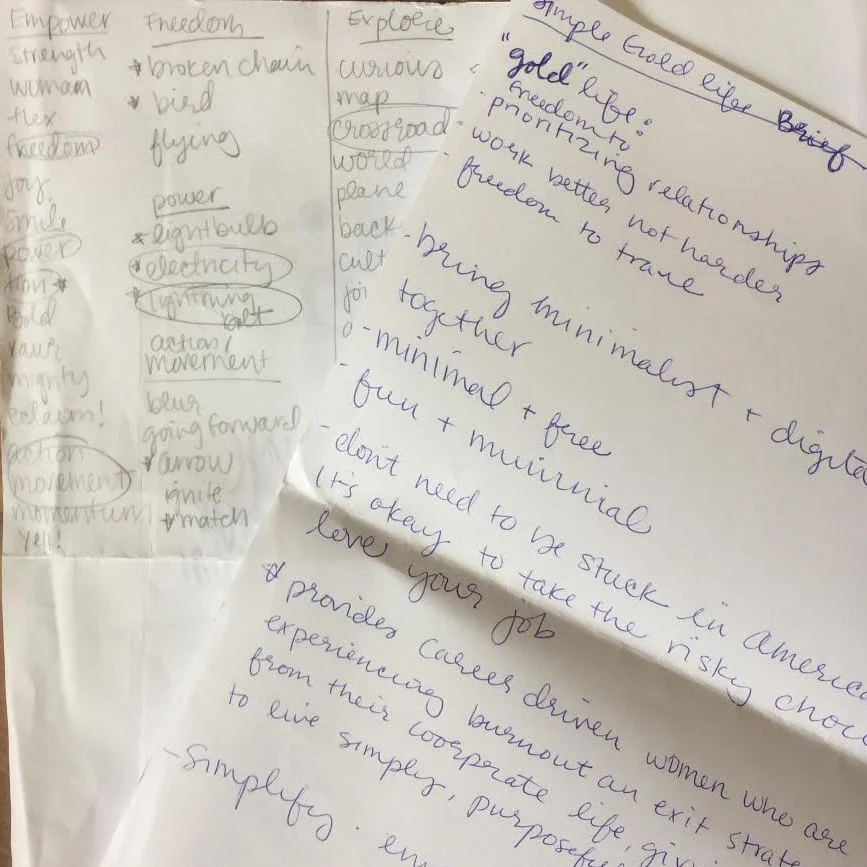 Empower
strength
woman
flex
freedom
joy
smile
power
Bold
mighty
action
movement
momentum
yell!
Freedom
* broken chain
* bird
flying
power
* lightbulb
* electricity
* lightning
bolt
action/
movement
blur
going forward
* arrow
ignite
* match
Explore
curious
map
crossroad
world
plane
back
cult
joi
Simple Gold life Brief
"gold" life:
freedom to
- prioritizing relationships
- work better not harder
- freedom to trave
- bring minimalist + digita
together
- minimal + free
- fun +
- don't need to be stuck in america
It's okay to take the risky choic
love your job
* provides career driven women who are
experiencing burnout an exit strate
from their coorperate life, givi
to live simply, purposefu
- Simplify.